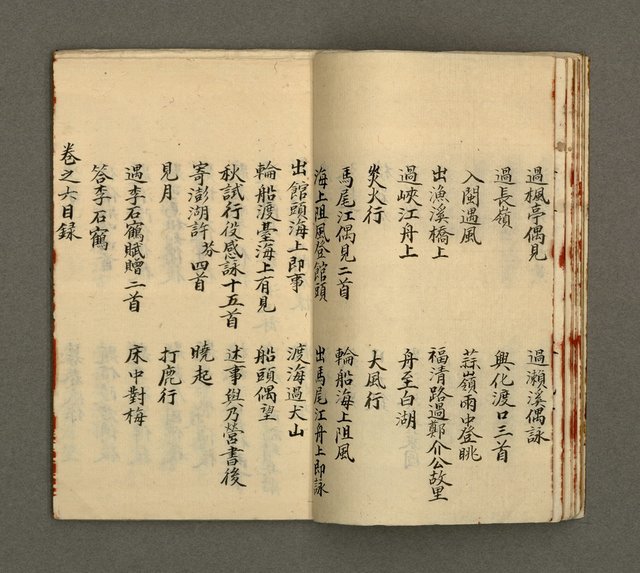 過楓亭偶見　過瀨溪偶詠
過長嶺　興化渡口三首
入閩遇風　蒜嶺雨中登眺
出漁溪橋上　福清路過鄭介公故里
過峽江舟上　舟至白湖
炎火行　大風行
馬尾江偶見二首　輪船海上阻風
海上阻風登館頭　出馬尾江舟上即詠
出館頭海上即事　渡海過犬山
輪船渡臺海上有見　船頭偶望
秋試行役感詠十五首　述事與乃營書後
寄澎湖許芬四首　曉起
見月　打鹿行
過李石鶴賦贈二首　床中對梅
答李石鶴
卷之六目録